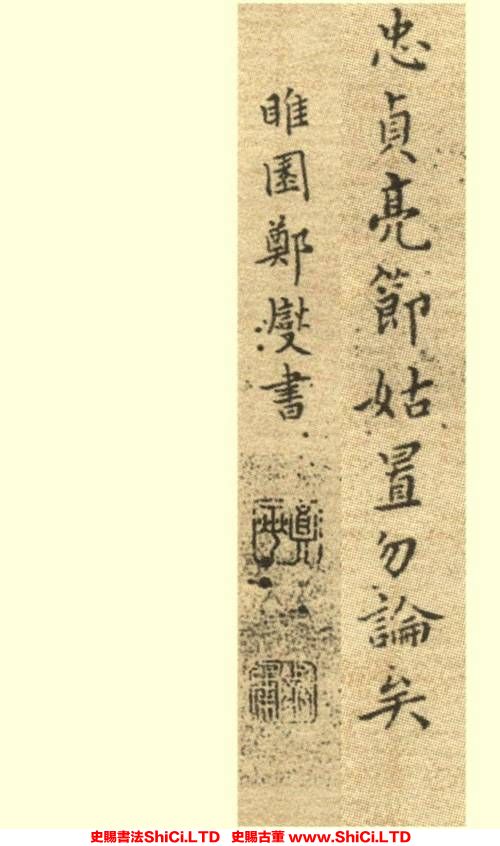 忠貞亮節姑置勿論矣
睢園鄭燮書
史賜書法ShiCi.LTD 史賜古董 www.ShiCi.LTD